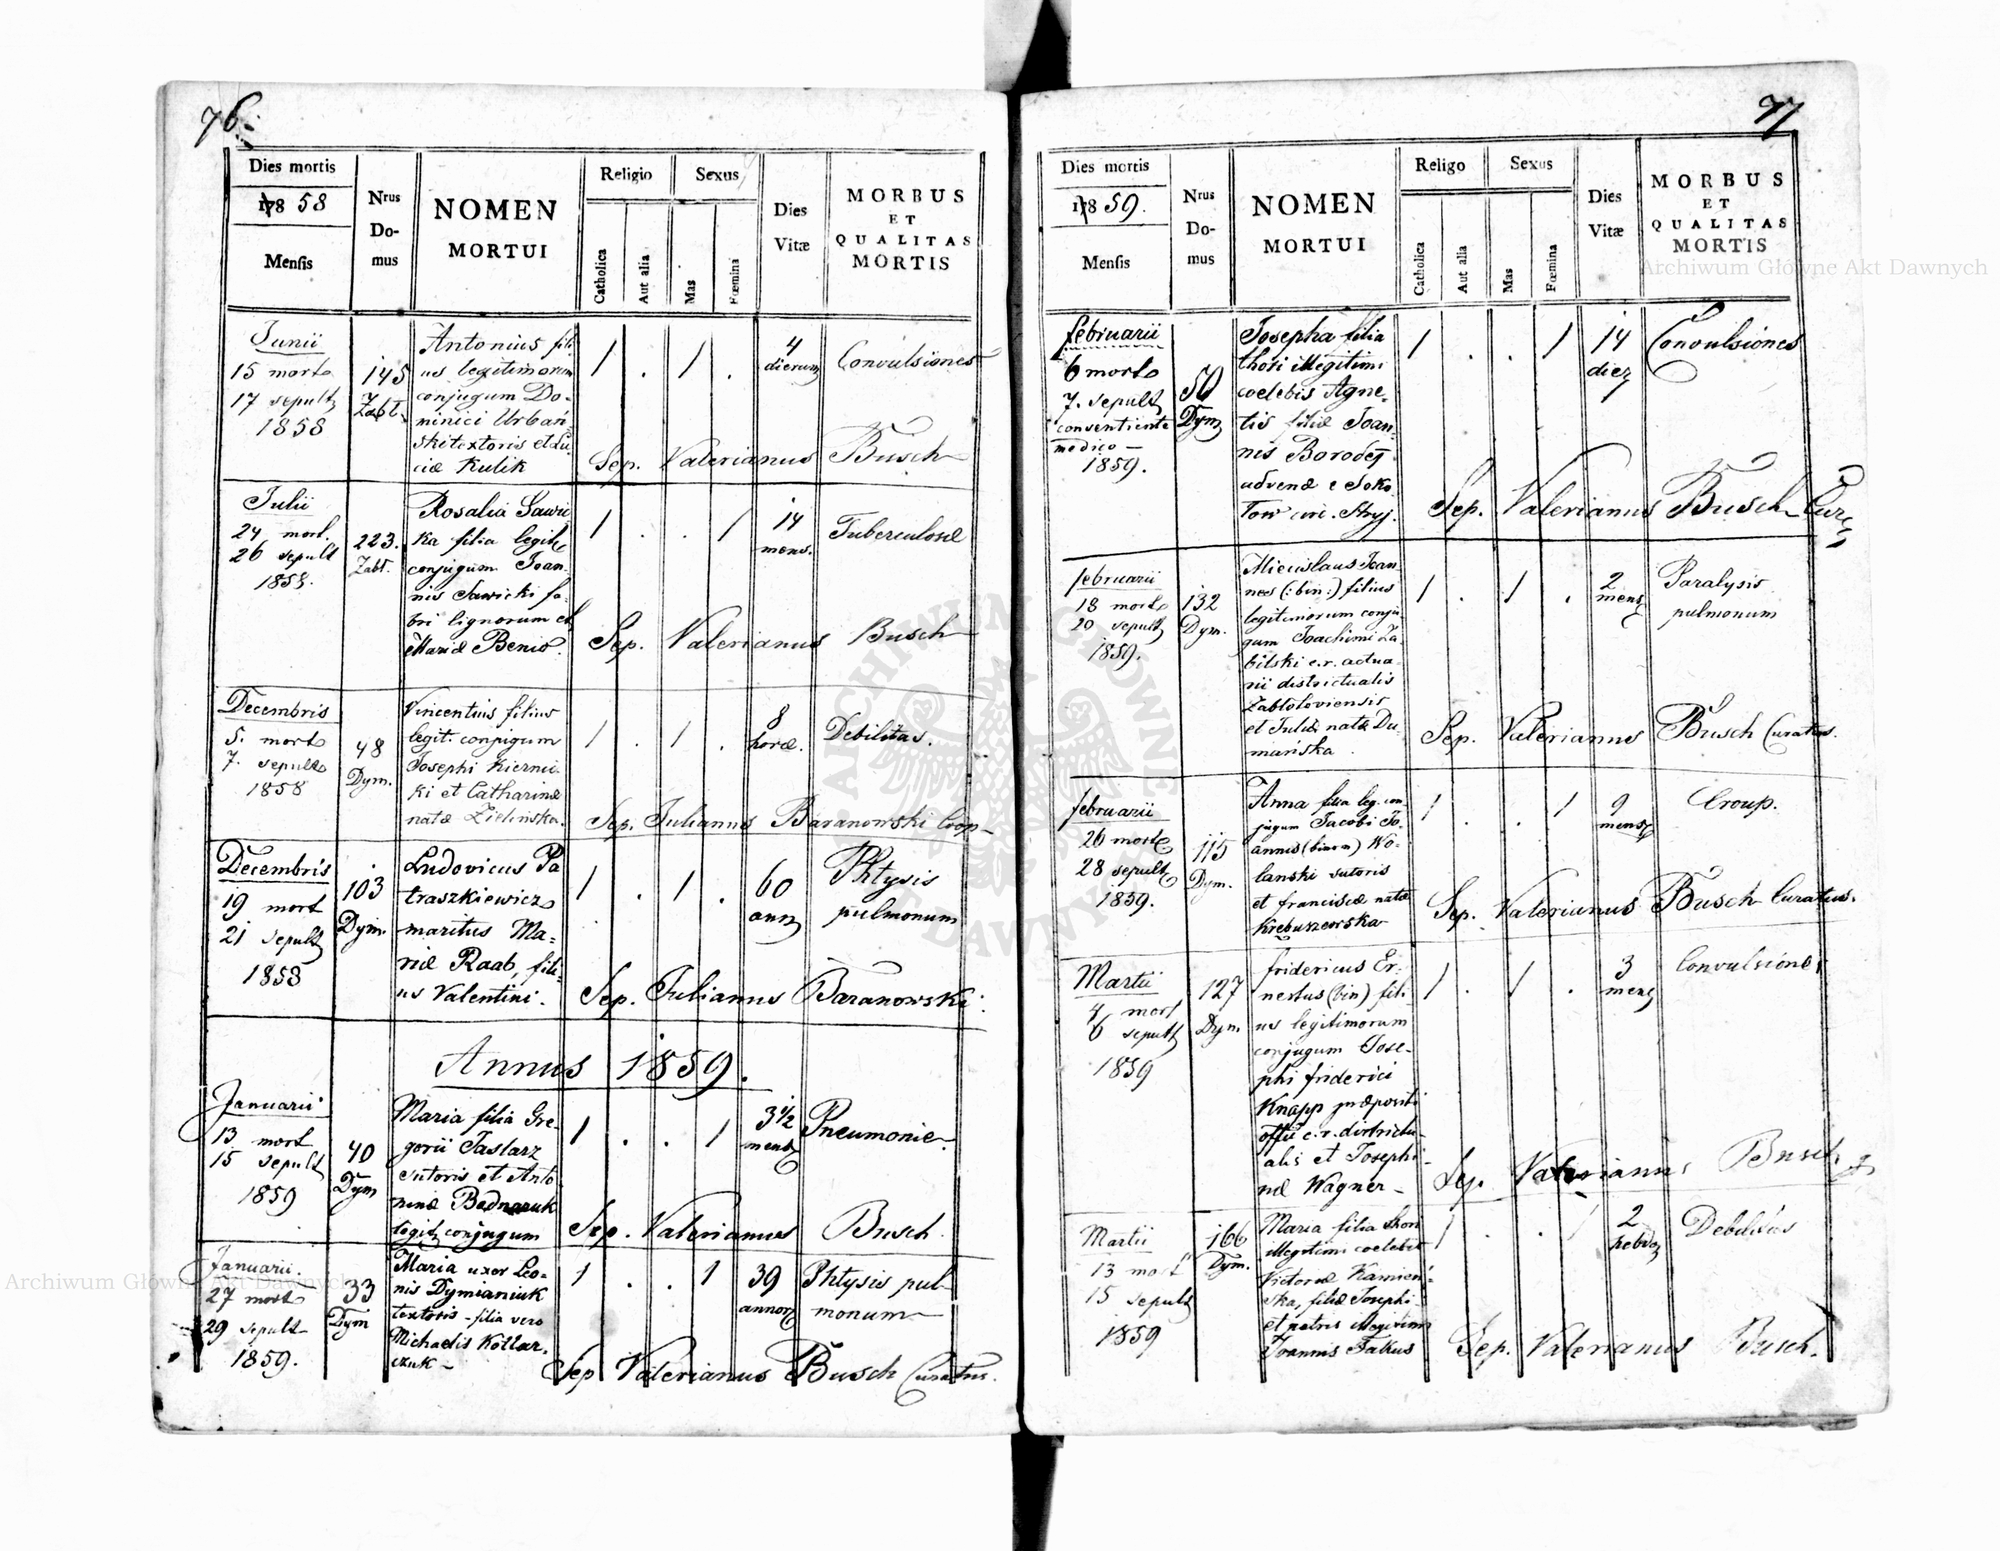 76.
Dies mortis
1858
Mensis
Nrus
Do-
mus
NOMEN
MORTUI
Religio
Catholica
Aut alia
Sexus
Mas
Fœmina
Dies
Vitæ
MORBUS
ET
QUALITAS
MORTIS
Junii
15 mort.
17 sepult.
1858
145
Zabt.
Antonius fili-
us legitimorum
conjugum Do-
minici Urbań-
ski textoris et Lu-
ciæ Kulik
1 . 1 .
4
dierum
Convulsiones
Sep. Valerianus Busch
Julii
24 mort.
26 sepult
1858.
223.
Zabt.
Rosalia Sawic
ka filia legit.
conjugum Joan-
nis Sawicki fa-
bri lignorum et
Mariæ Benio.
1 . . 1
14
mens.
Tuberculosæ
Sep. Valerianus Busch
Decembris
5. mort.
7. sepult.
1858
48
Dym.
Vincentius filius
legit: conjugum
Josephi Kiernic
ki et Catharinæ
natæ Zielinska.
1 . 1 .
8
horæ.
Debilitas.
Sep. Julianus Baranowski Coop
Decembris
19 mort
21 sepult
1858
103
Dym.
Ludovicus Pa
traszkiewicz
maritus Ma-
riæ Raab, fili-
us Valentini.
1 . 1 .
60
ann
Phtysis
pulmonum
Sep. Julianus Baranowski.
Annus 1859.
Januarii
13 mort
15 sepult
1859
40
Dym
Maria filia Gre-
gorii Taslarz
sutoris et Anto
ninæ Bednaruk
legit conjugum
1 . . 1
3 1/2
mens
Pneumonie
Sep. Valerianus Busch.
Januarii.
27 mort
29 sepult
1859.
33
Dym
Maria uxor Leo-
nis Dymianiuk
textoris - filia vero
Michaelis Kotlar.
czuk -
1 . . 1
39
annor
Phtysis pul-
monum
Sep Valerianus Busch Curatus.
77
Dies mortis
1859.
Mensis
Nrus
Do-
mus
NOMEN
MORTUI
Religo
Catholica
Aut alia
Sexus
Mas
Fœmina
Dies
Vitæ
MORBUS
ET
QUALITAS
MORTIS
februarii
6 mort.
7. sepult
consentiente
medico -
1859.
50
Dym
Josepha filia
thori illegitimi
coelebis Agne-
tis filiæ Joan-
nis Borodej
advenæ e Soko
low circ. Stryj.
1 . . 1
14
dier
Convulsiones
Sep. Valerianus Busch Cur
februarii
18 mort.
20 sepult
1859.
132
Dym.
Miecislaus Joan-
nes (:bin:) filius
legitimorum conju
gum Joachimi Za-
bilski c.r. actua-
rii districtualis
Zablotoviensis
et Juliæ natæ Du-
mańska.
1 . 1 .
2
mens
Paralysis
pulmonum
Sep. Valerianus Busch Curatus.
februarii
26 mort
28 sepult
1859.
115
Dym.
Anna filia leg. con
jugum Jacobi Jo-
annis (binom) Wo-
lanski sutoris
et franciscæ natæ
Krebuszewska
1 . . 1
9
mens
Croup.
Sep. Valerianus Busch Curatus.
Martii
4 mort
6 sepult
1859
127
Dym.
fridericus Er-
nestus (bin) fili
us legitimorum
conjugum Jose-
phi friderici
Knapp præpositi
offic c.r. districtu-
alis et Josephi-
næ Wagner -
1 . 1 .
3
mens
Convulsiones
Sep. Valerianus Busch
Martii
13 mort
15 sepult
1859
166
Dym.
Maria filia thori
illegitimi coelebis
Victoriæ Kamień-
ska, filiæ Josephi
et patris illegitimi
Joannis Falkus
1 . . 1
2
hebdo
Debilitas
Sep. Valerianus Busch.
Archiwum Główne Akt Dawnych
Archiwum Główne Akt Dawnych
ARCHIWUM GŁÓWNE AKT DAWNYCH